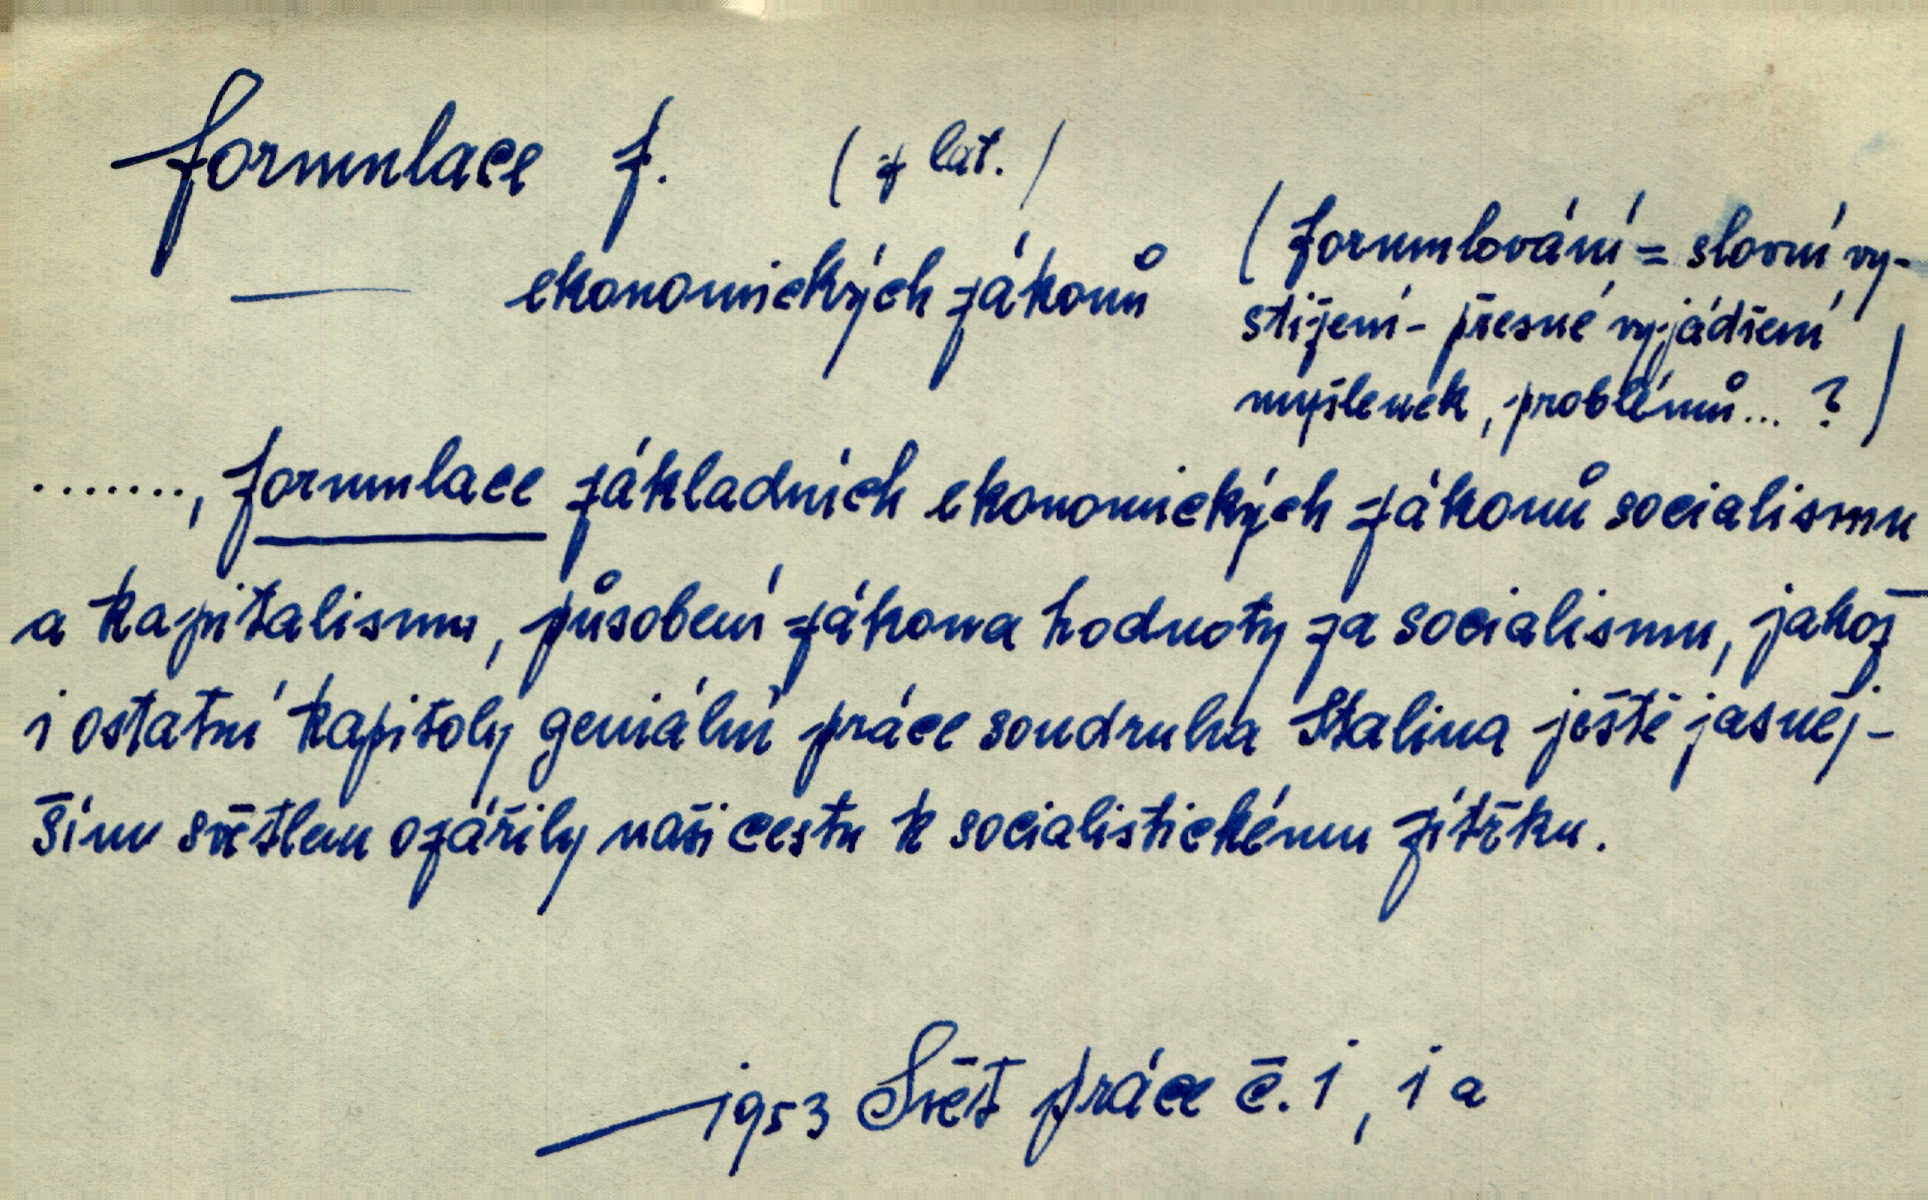 formulace f. (z lat.)
ekonomických zákonů
(formulování = slovní vy-
stižení - přesné vyjádření
myšlenek, problémů... ?)
......., formulace základních ekonomických zákonů socialismu
a kapitalismu, působení zákona hodnoty za socialismu, jakož
i ostatní kapitoly geniální práce soudruha Stalina ještě jasněj-
ším světlem ozářily naši cestu k socialistickému zítřku.
1953 Svět práce č. 1, 1 a